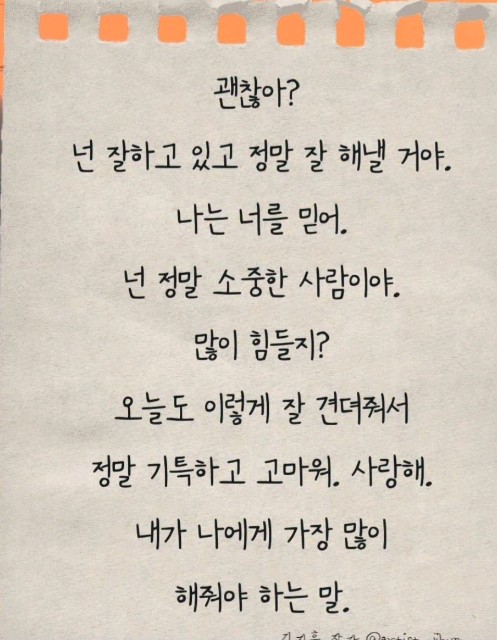 괜찮아?
넌 잘하고 있고 정말 잘 해낼 거야.
나는 너를 믿어.
넌 정말 소중한 사람이야.
많이 힘들지?
오늘도 이렇게 잘 견뎌줘서
정말 기특하고 고마워. 사랑해.
내가 나에게 가장 많이
해줘야 하는 말.